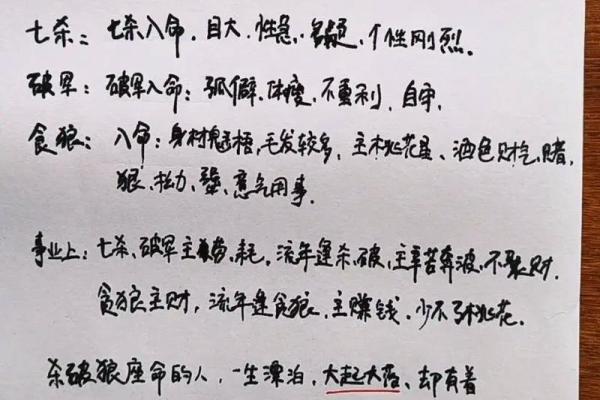 七杀：七杀入命，目大，性急，多疑，个性刚烈。
破军：破军入命：孤僻，体瘦，不重利，自守，
贪狼：入命：身材魁梧，毛发较多，主桃花星、酒色财气，赌，
狠，松力，意气用事。
事业上：七杀、破军主劳、耗，流年逢杀、破，主辛苦奔波，不聚财，
贪狼主财，流年逢贪狼，主赚钱，少不了桃花。
杀破狼座命的人，一生漂泊，大起大落、却有着